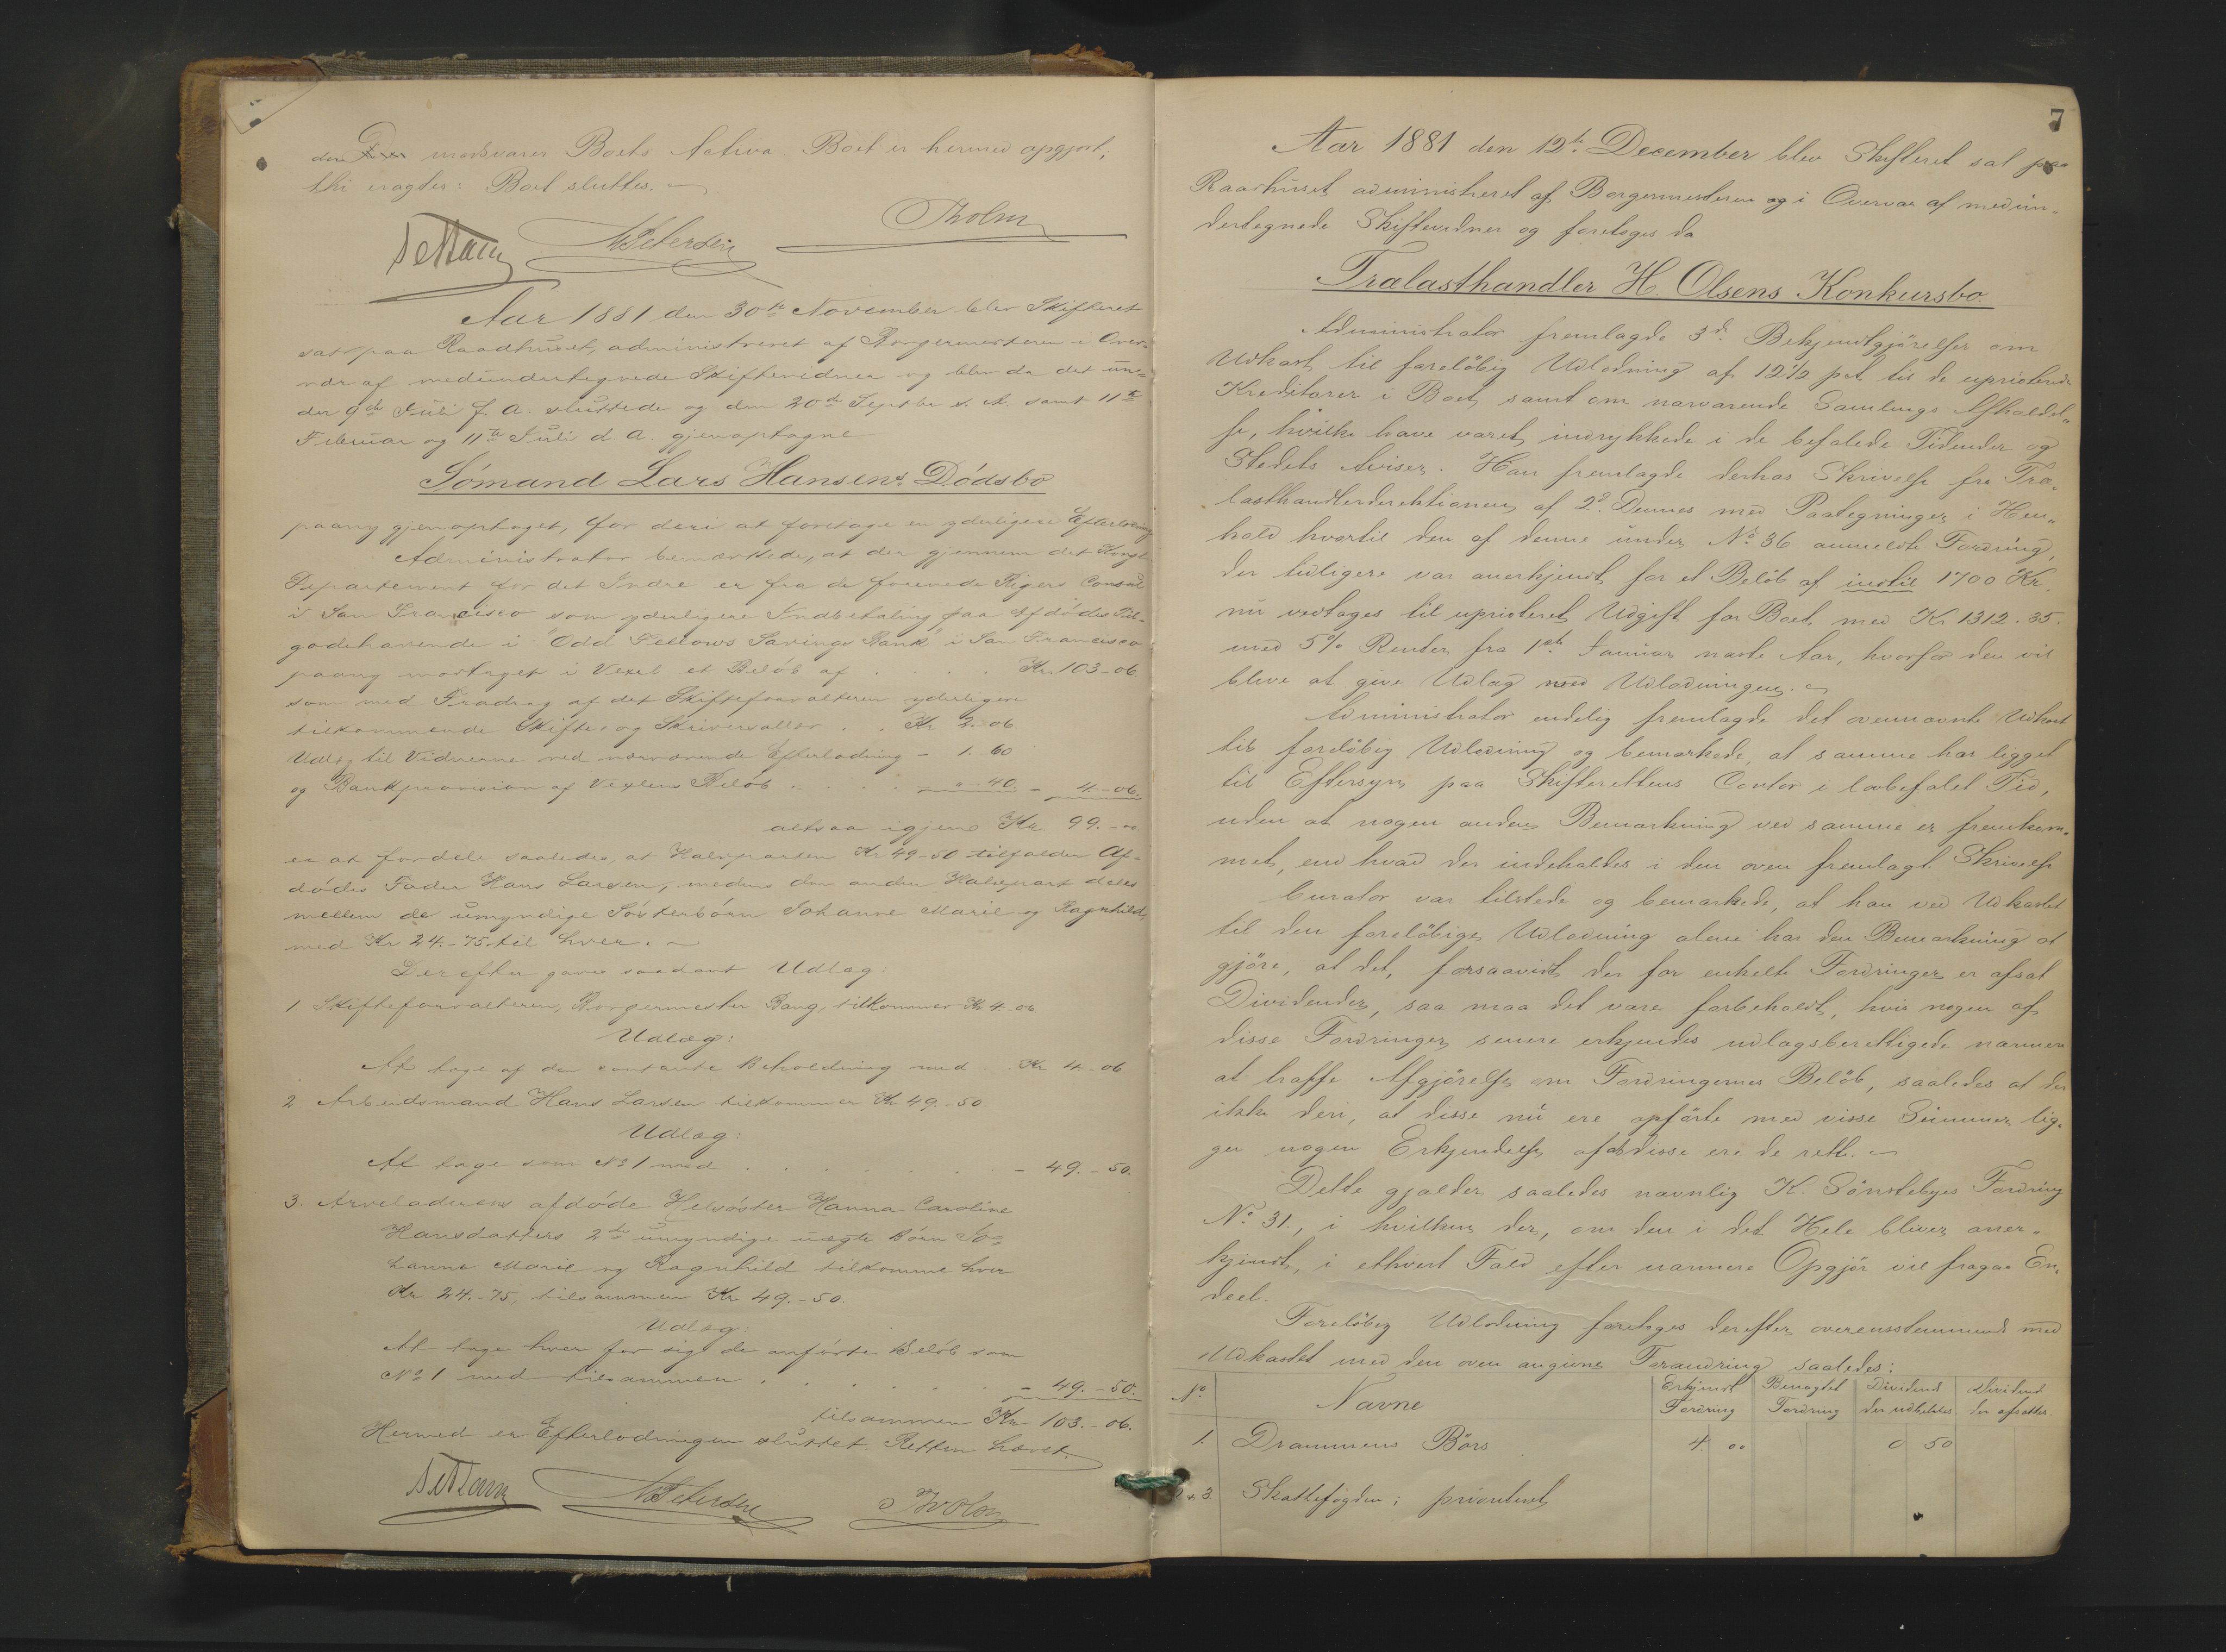 den modsvarer Boets Activa. Boet er hermed opgjort,
thi eragtes: Boet sluttes.
Tholm
Aar 1881 den 30te November blev Skifteret
sat paa Raadhuset, administreret af Borgermesteren i Over-
vær af medundertegnede Skiftevidner og blev da det un-
der 9de Juli f. A. sluttede og den 20de Septbr s. A. samt 11te
Februar og 11te Juli d. A. gjenoptagne
Sömand Lars Hansens Dödsbo
paany gjenoptaget, for deri at foretage en yderligere Efterlodning
Administrator bemærkede, at der gjennem det Kongl.
Departement for det Indre er fra de forenede Rigers Consul
i San Francisco som yderligere Indbetaling paa Afdödes Til-
godehavende i "Odd Fellows Savings Bank" i San Francisco
paany modtaget i Vexel et Belöb af . . . . Kr. 103-06
som med Fradrag af det Skifteforvalteren yderligere
tilkommende Skifte- og Skriversallær . . Kr 2.-06.
Udlæg til Vidnerne ved nærværende Efterlodning - 1.-60
og Bankprovision af Vexlens Belöb . . . . - 40. - 4.-06.
altsaa igjen Kr. 99.-00
er at fordele saaledes, at Halvparten Kr 49-50 tilfalder Af-
dödes Fader Hans Larsen, medens den anden Halvpart deles
mellem de umyndige Sösterbörn Johanne Marie og Ragnhild,
med Kr 24.-75 til hver.
Derefter gaves saadant Udlæg:
1 Skifteforvalteren, Borgermester Bang, tilkommer Kr 4.-06
Udlæg:
At tage af den contante Beholdning med . . Kr 4.-06.
2 Arbeidsmand Hans Larsen tilkommer Kr 49.-50
Udlæg:
At tage som No 1 med . . . . . . . - 49.-50.
3. Arveladerens afdöde Helsöster Hanna Caroline
Hansdatters 2de umyndige uægte Börn Jo-
hanne Marie og Ragnhild tilkomme hver
Kr 24.-75, tilsammen Kr 49.-50.
Udlæg:
At tage hver for sig de anförte Belöb som
No 1 med tilsammen . . . . . . - 49.-50.
tilsammen Kr 103.-06.
Hermed er Efterlodningen sluttet. Retten hævet.
7
Aar 1881 den 12te December blev Skifteret sat paa
Raadhuset administreret af Borgermesteren og i Overvær af medun-
dertegnede Skiftevidner og foretoges da
Trælasthandler H. Olsens Konkursbo.
Administrator fremlagde 3de Bekjendtgjörelser om
Udkast til forelöbig Udlodning af 12½ pct til de uprioterede
Kreditorer i Boet, samt om nærværende Samlings Afholdel-
se, hvilke have været indrykkede i de befalede Tidender og
Stedets Aviser. Han fremlagde derhos Skrivelse fra Træ-
lasthandlerdirektionen af 2d Dennes med Paategninger i Hen-
hold hvortil den af denne under No 36 anmeldte Fordring,
der tidligere var anerkjendt for et Belöb af indtil 1700 Kr.
nu vedtages til uprioteret Udgift for Boet med Kr 1312.35.
med 5% Renter fra 1ste Januar næste Aar, hvorfor den vil
blive at give Udlæg ved Udlodningen.
Administrator endelig fremlagde det ovennævnte Udkast
til forelöbig Udlodning og bemærkede, at samme har ligget
til Eftersyn paa Skifterettens Contor i lovbefalet Tid,
uden at nogen anden Bemærkning ved samme er fremkom-
met, end hvad der indeholdes i den oven fremlagt Skrivelse
Curator var tilstede og bemærkede, at han ved Udkastet
til den forelöbige Udlodning alene har den Bemærkning at
gjöre, at det, forsaavidt der for enkelte Fordringer er afsat
Dividender, saa maa det være forbeholdt, hvis nogen af
disse Fordringer senere erkjendes udlægsberettigede nærmere
at træffe Afgjörelse om Fordringernes Belöb, saaledes at der
ikke deri, at disse nu ere opförte med visse Summer, lig-
ger nogen Erkjendelse af at disse ere de rette.
Dette gjælder saaledes navnlig K. Sönstebyes Fordring
No 31., i hvilken der, om den i det Hele bliver aner-
kjendt, i ethvert Fald efter nærmere Opgjör vil fragaa En-
deel.
Forelöbig Udlodning foretoges derefter overensstemmende med
Udkastet med den oven angivne Forandring saaledes:
No Navne Erkjendt Fordring Benægtet Fordring Dividend der udbetales Dividend der afsættes
1. Drammens Börs 4 00 0 50
2 & 3. Skattefogden; prioriteret